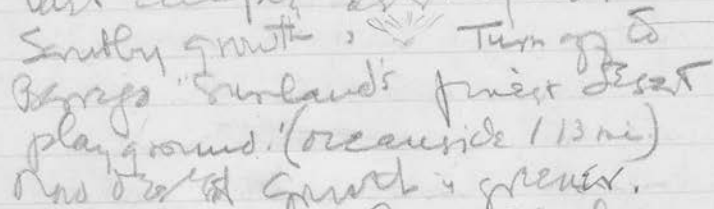 growth, Turn off to
Borrego "Sunland's finest desert
playground." (Oceanside 113 mi)
Now growth is greener.